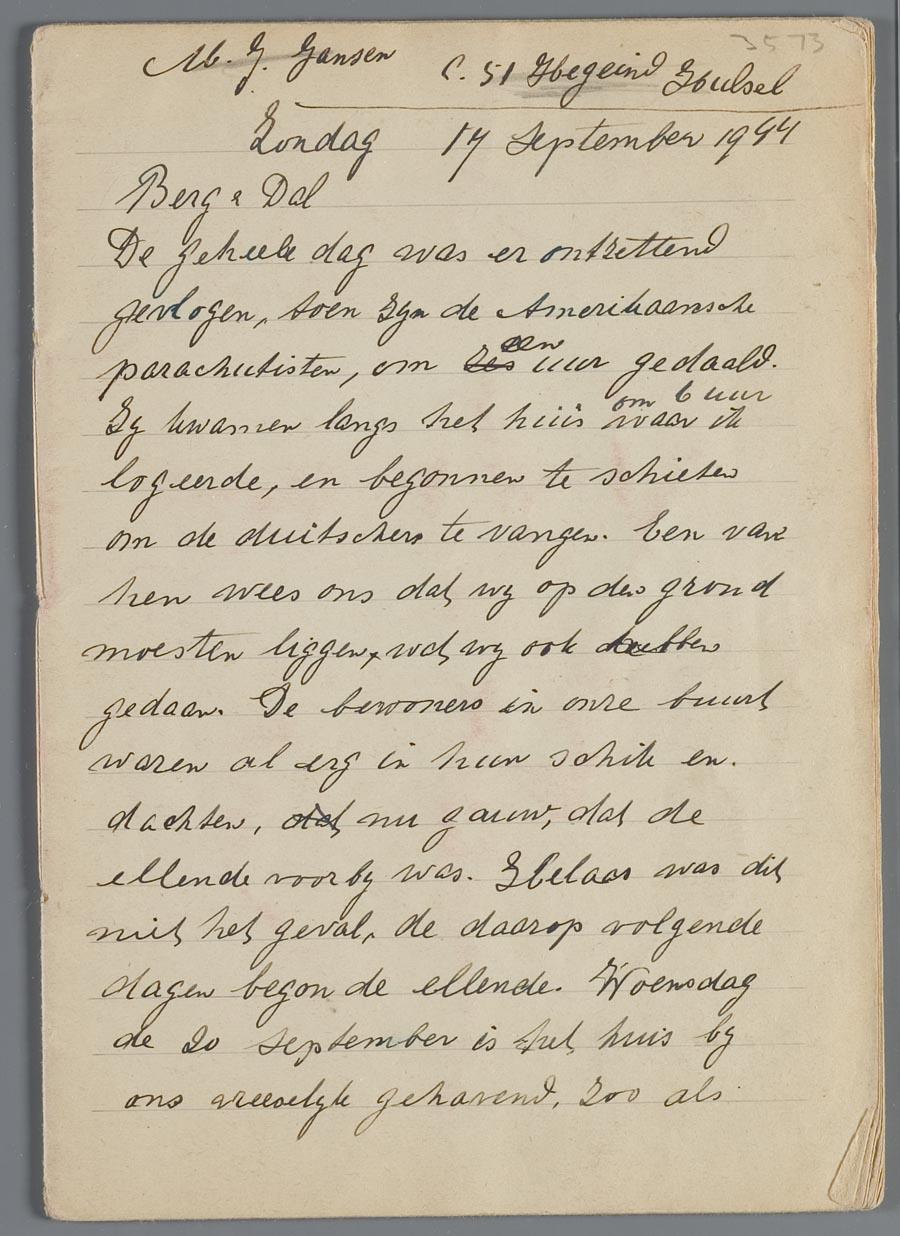 M. J. Jansen C. 51 Hegeind Hulsel
3573
Zondag 17 September 1944
Berg & Dal
De geheele dag was er ontzettend
gevlogen, toen zyn de Amerikaansche
parachutisten, om zes een uur gedaald.
Zy kwamen langs het huis waar ik om 6 uur
logeerde, en begonnen te schieten
om de duitschers te vangen. Een van
hen wees ons dat wy op den grond
moesten liggen, wat wy ook hebben
gedaan. De bewoners in onze buurt
waren al erg in hun schik en.
dachten, dat nu gauw, dat de
ellende voorby was. Helaas was dit
niet het geval, de daarop volgende
dagen begon de ellende. Woensdag
de 20 September is het huis by
ons vreeselyk gehavend, zoo als